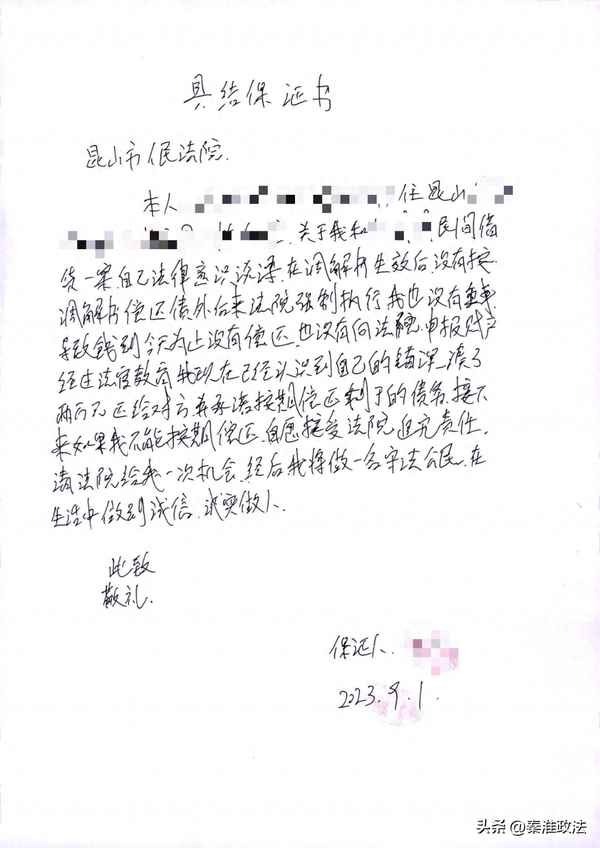 具结保证书
昆山市人民法院.
本人 住昆山
关于我和 民间借
贷一案.自己法律意识淡漠.在调解书生效后没有按
调解书偿还债务后来法院强制执行我也没有重视
导致钱到今天为止没有偿还.也没有向法院申报财产
经过法官教育.我现在已经认识到自己的错误.凑了
两万元还给对方.并承诺按期偿还剩下的债务.接下
来如果我不能按期偿还.自愿接受法院追究责任.
请法院给我一次机会.经后我将做一名守法公民.在
生活中做到诚信.诚实做人.
此致
敬礼.
保证人.
2023.9.1.
头条 @秦淮政法